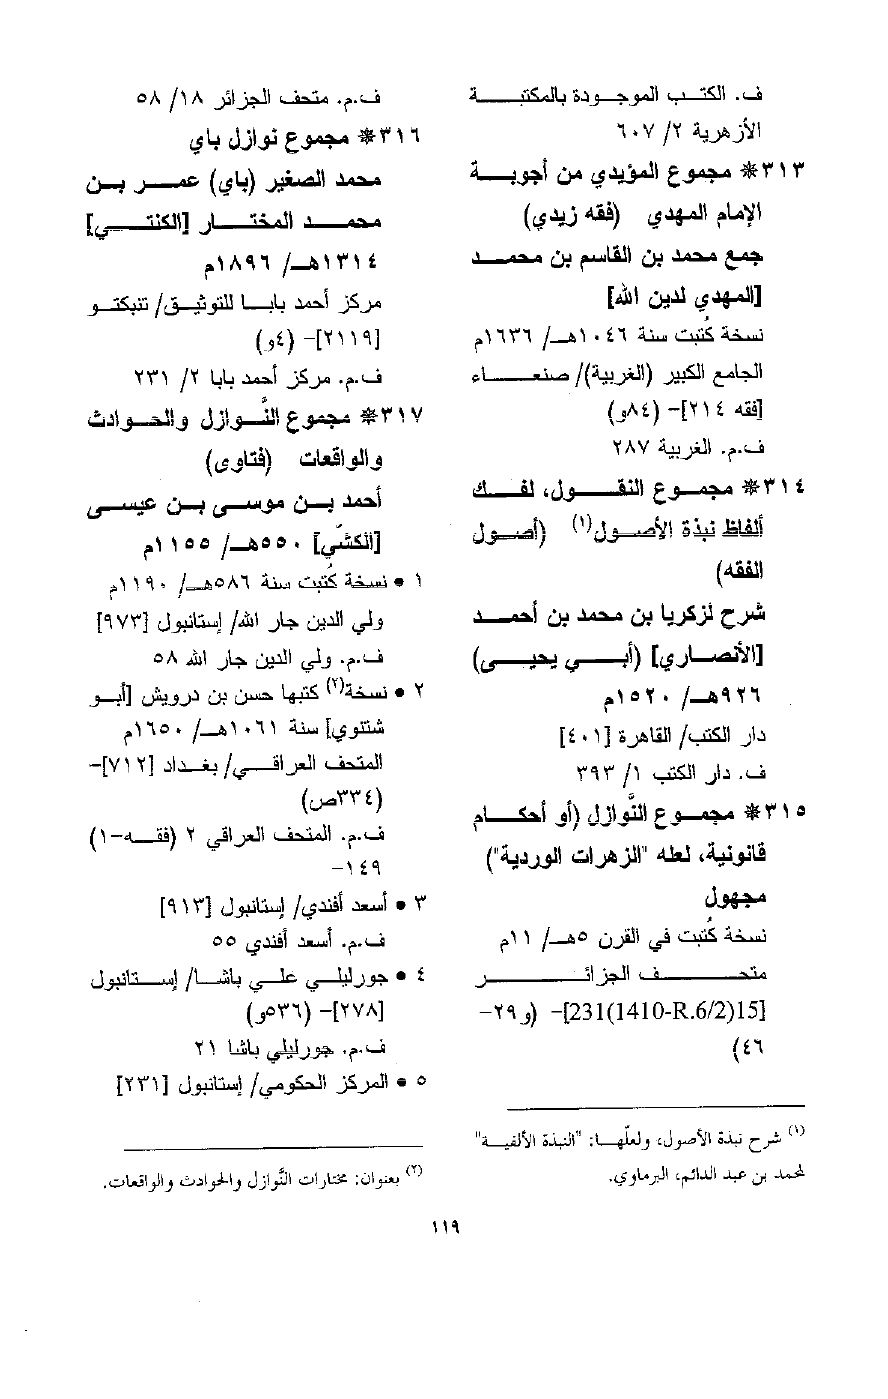 ف. الكتب الموجودة بالمكتبة
الأزهرية ٢/ ٦٠٧
٣١٣* مجموع المؤيدي من أجوبة
الإمام المهدي (فقه زيدي)
جمع محمد بن القاسم بن محمد
[المهدي لدين الله]
نسخة كُتبت سنة ١٠٤٦هـ/ ١٦٣٦م
الجامع الكبير (الغربية)/ صنعاء
[فقه ٢١٤]- (٨٤و)
ف.م. الغربية ٢٨٧
٣١٤* مجموع النقول، لفك
ألفاظ نبذة الأصول(١) (أصول
الفقه)
شرح لزكريا بن محمد بن أحمد
[الأنصاري] (أبي يحيى)
٩٢٦هـ/ ١٥٢٠م
دار الكتب/ القاهرة [٤٠١]
ف. دار الكتب ١/ ٣٩٣
٣١٥* مجموع النَّوازل (أو أحكام
قانونية، لعله "الزهرات الوردية")
مجهول
نسخة كُتبت في القرن ٥هـ/ ١١م
متحف الجزائر
[15(231(1410-R.6/2]- (و٢٩-
٤٦)
(١) شرح نبذة الأصول، ولعلّها: "النبذة الألفية"
لمحمد بن عبد الدائم، البرماوي.
ف.م. متحف الجزائر ١٨/ ٥٨
٣١٦* مجموع نوازل باي
محمد الصغير (باي) عمر بن
محمد المختار [الكنتي]
١٣١٤هـ/ ١٨٩٦م
مركز أحمد بابا للتوثيق/ تنبكتو
[٢١١٩]- (٤و)
ف.م. مركز أحمد بابا ٢/ ٢٣١
٣١٧* مجموع النَّوازل والحوادث
والواقعات (فتاوى)
أحمد بن موسى بن عيسى
[الكشّي] ٥٥٠هـ/ ١١٥٥م
١ • نسخة كُتبت سنة ٥٨٦هـ/ ١١٩٠م
ولي الدين جار الله/ إستانبول [٩٧٣]
ف.م. ولي الدين جار الله ٥٨
٢ • نسخة(٢) كتبها حسن بن درويش [أبو
شنتوي] سنة ١٠٦١هـ/ ١٦٥٠م
المتحف العراقي/ بغداد [٧١٢]-
(٣٣٤ص)
ف.م. المتحف العراقي ٢ (فقه-١)
-١٤٩
٣ • أسعد أفندي/ إستانبول [٩١٣]
ف.م. أسعد أفندي ٥٥
٤ • جورليلي علي باشا/ إستانبول
[٢٧٨]- (٥٣٦و)
ف.م. جورليلي باشا ٢١
٥ • المركز الحكومي/ إستانبول [٢٣١]
(٢) بعنوان: مختارات النَّوازل والحوادث والواقعات.
١١٩